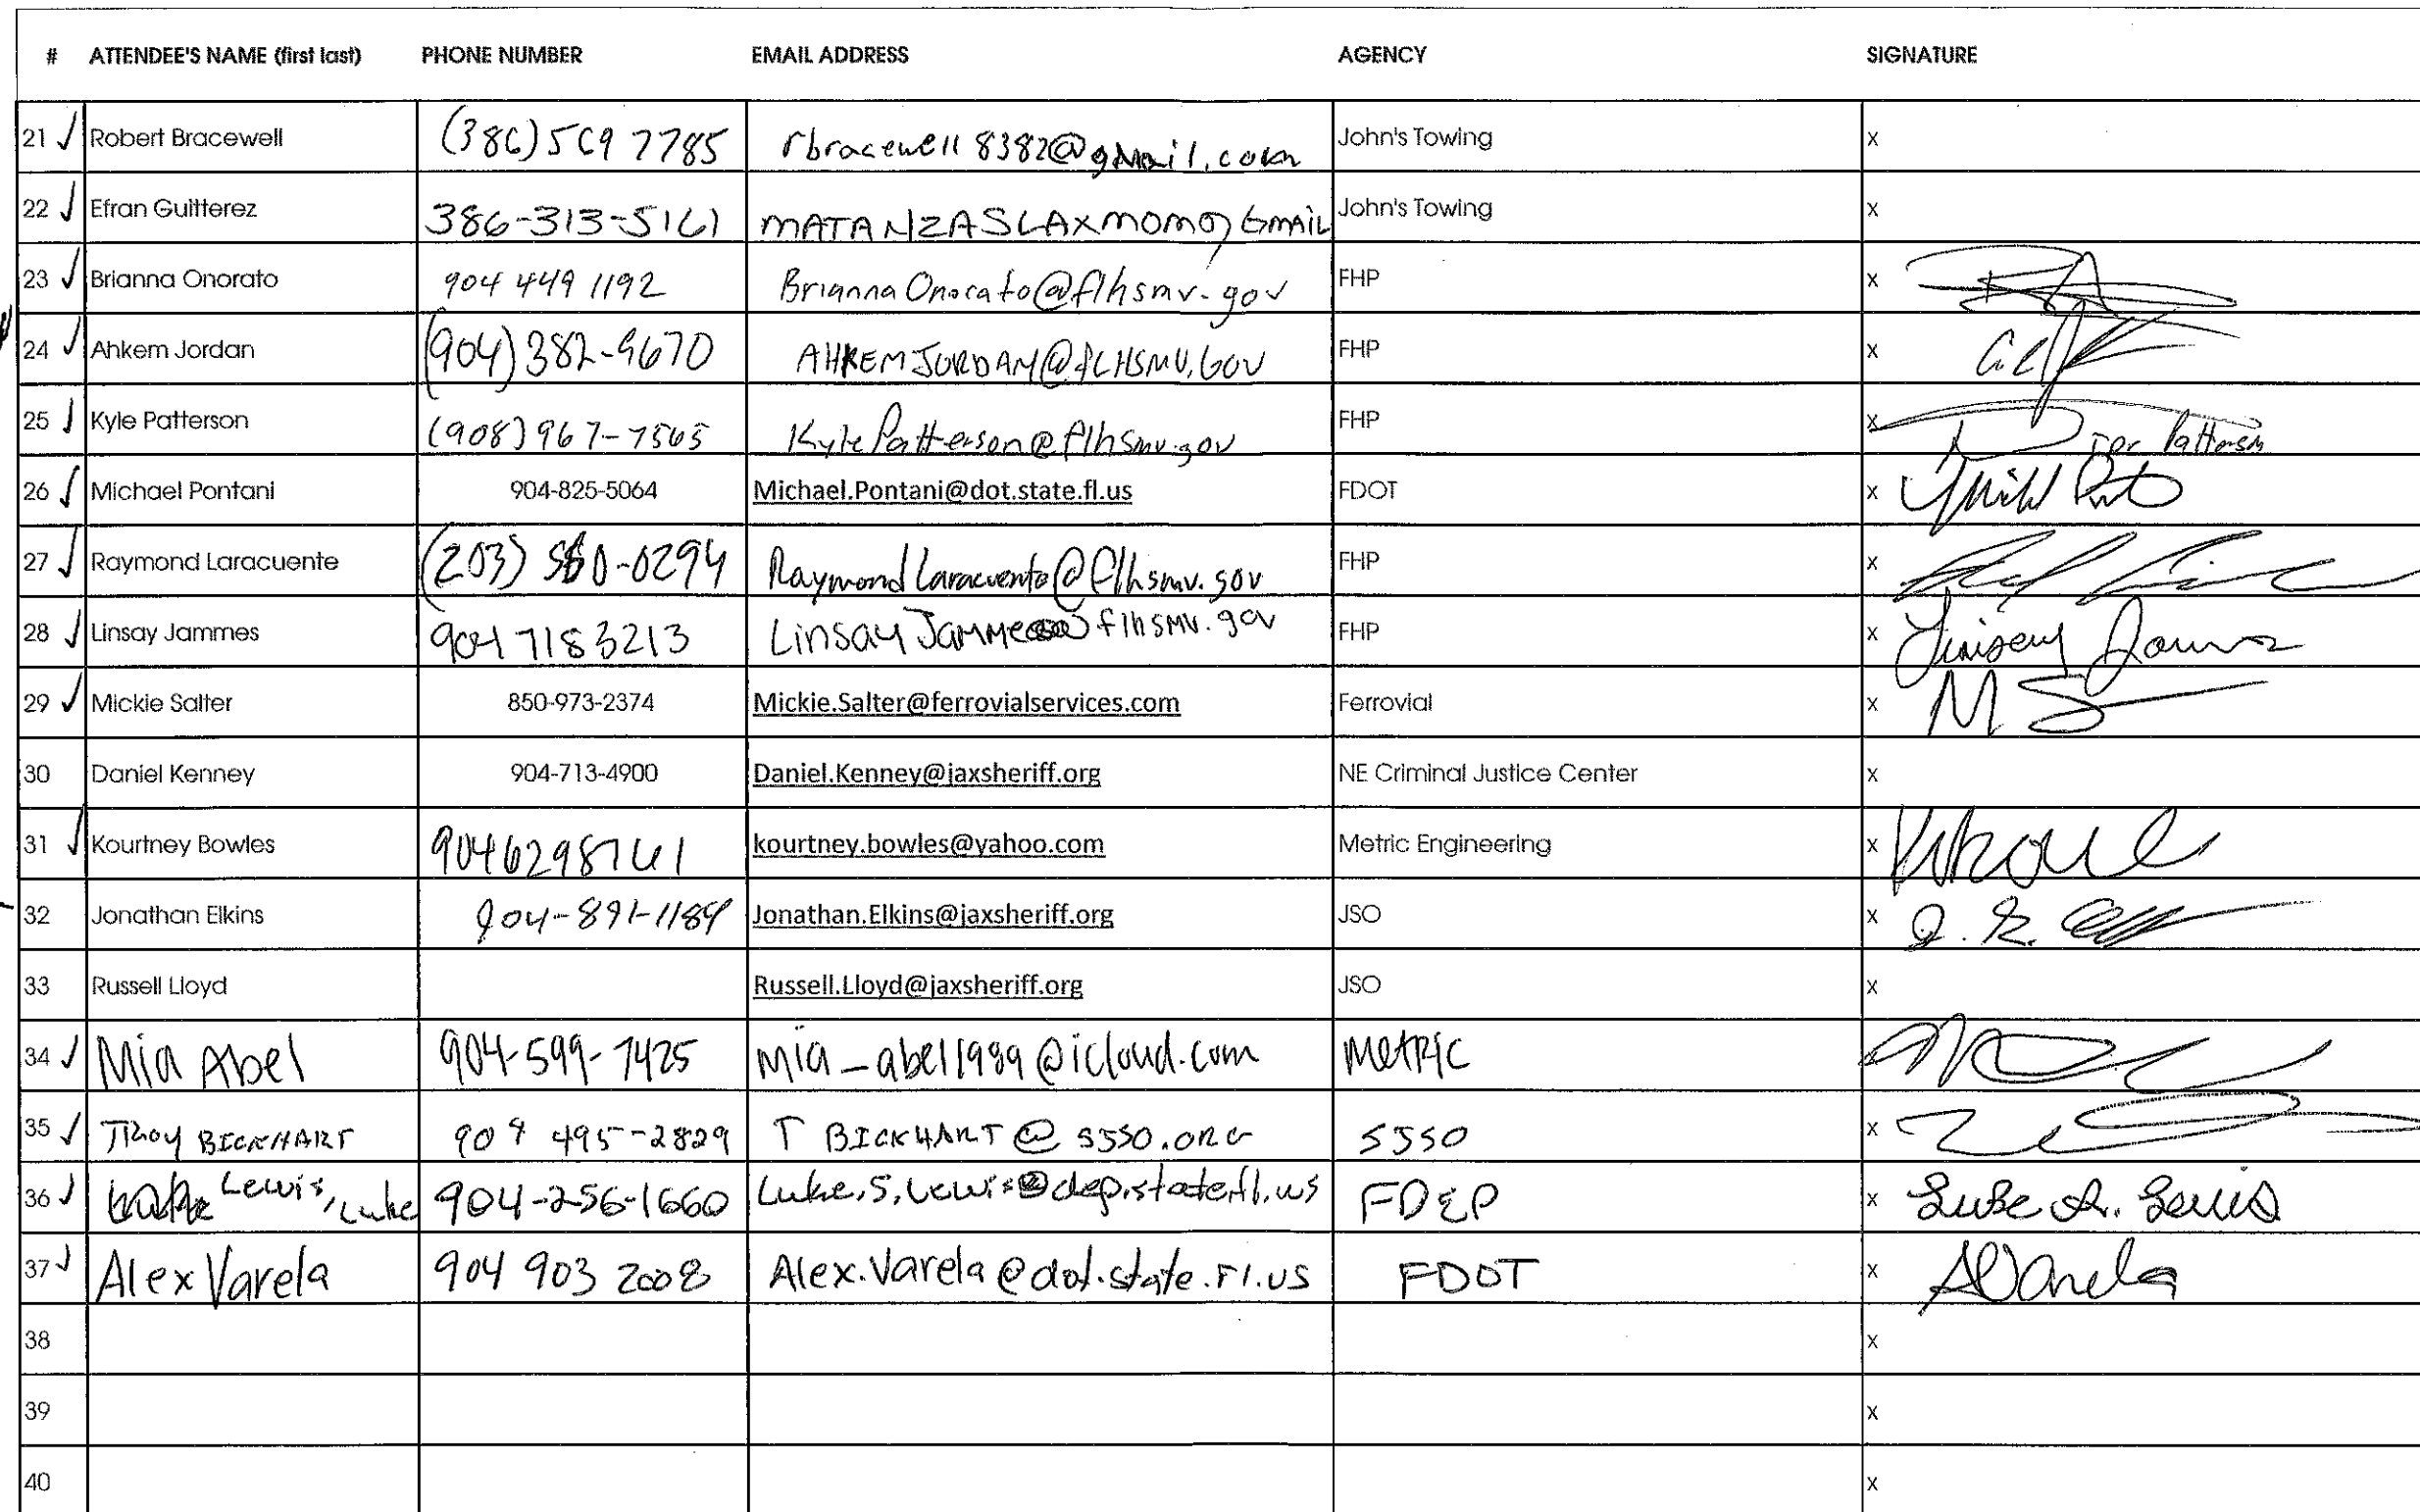 # ATTENDEE'S NAME (first last) PHONE NUMBER EMAIL ADDRESS AGENCY SIGNATURE
21 ✓ Robert Bracewell (386) 569 7785 rbracewell8382@gmail.com John's Towing x
22 ✓ Efran Guitterez 386-313-5161 MATANZASLAXMOM@GMAIL John's Towing x
23 ✓ Brianna Onorato 904 449 1192 BriannaOnorato@flhsmv.gov FHP x
24 ✓ Ahkem Jordan (904) 382-9670 AHKEMJORDAN@fLHSMV.GOV FHP x
25 ✓ Kyle Patterson (908) 967-7565 KylePatterson@flhsmv.gov FHP x Tpr Patterson
26 ✓ Michael Pontani 904-825-5064 Michael.Pontani@dot.state.fl.us FDOT x
27 ✓ Raymond Laracuente (203) 560-0294 RaymondLaracuente@flhsmv.gov FHP x
28 ✓ Linsay Jammes 904 7183213 LinsayJammes@flhsmv.gov FHP x Linsay Jammes
29 ✓ Mickie Salter 850-973-2374 Mickie.Salter@ferrovialservices.com Ferrovial x MS
30 Daniel Kenney 904-713-4900 Daniel.Kenney@jaxsheriff.org NE Criminal Justice Center x
31 ✓ Kourtney Bowles 9046298761 kourtney.bowles@yahoo.com Metric Engineering x
32 Jonathan Elkins 904-891-1189 Jonathan.Elkins@jaxsheriff.org JSO x
33 Russell Lloyd Russell.Lloyd@jaxsheriff.org JSO x
34 ✓ Mia Abel 904-599-7425 mia_abel1989@icloud.com METRIC x
35 ✓ TROY BICKHART 904 495-2829 T BICKHART@SJSO.ORG SJSO x
36 ✓ Lewis, Luke 904-256-1660 Luke.S.Lewis@dep.state.fl.us FDEP x Luke S. Lewis
37 ✓ Alex Varela 904 903 2008 Alex.Varela@dot.state.Fl.us FDOT x AVarela
38 x
39 x
40 x